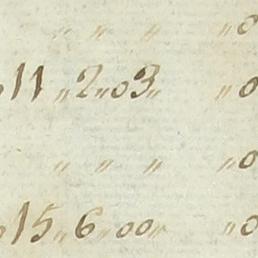 " " " " 0
11 " 2 " 03 " " 0
" " " " 0
15 " 6 " 00 " " 0